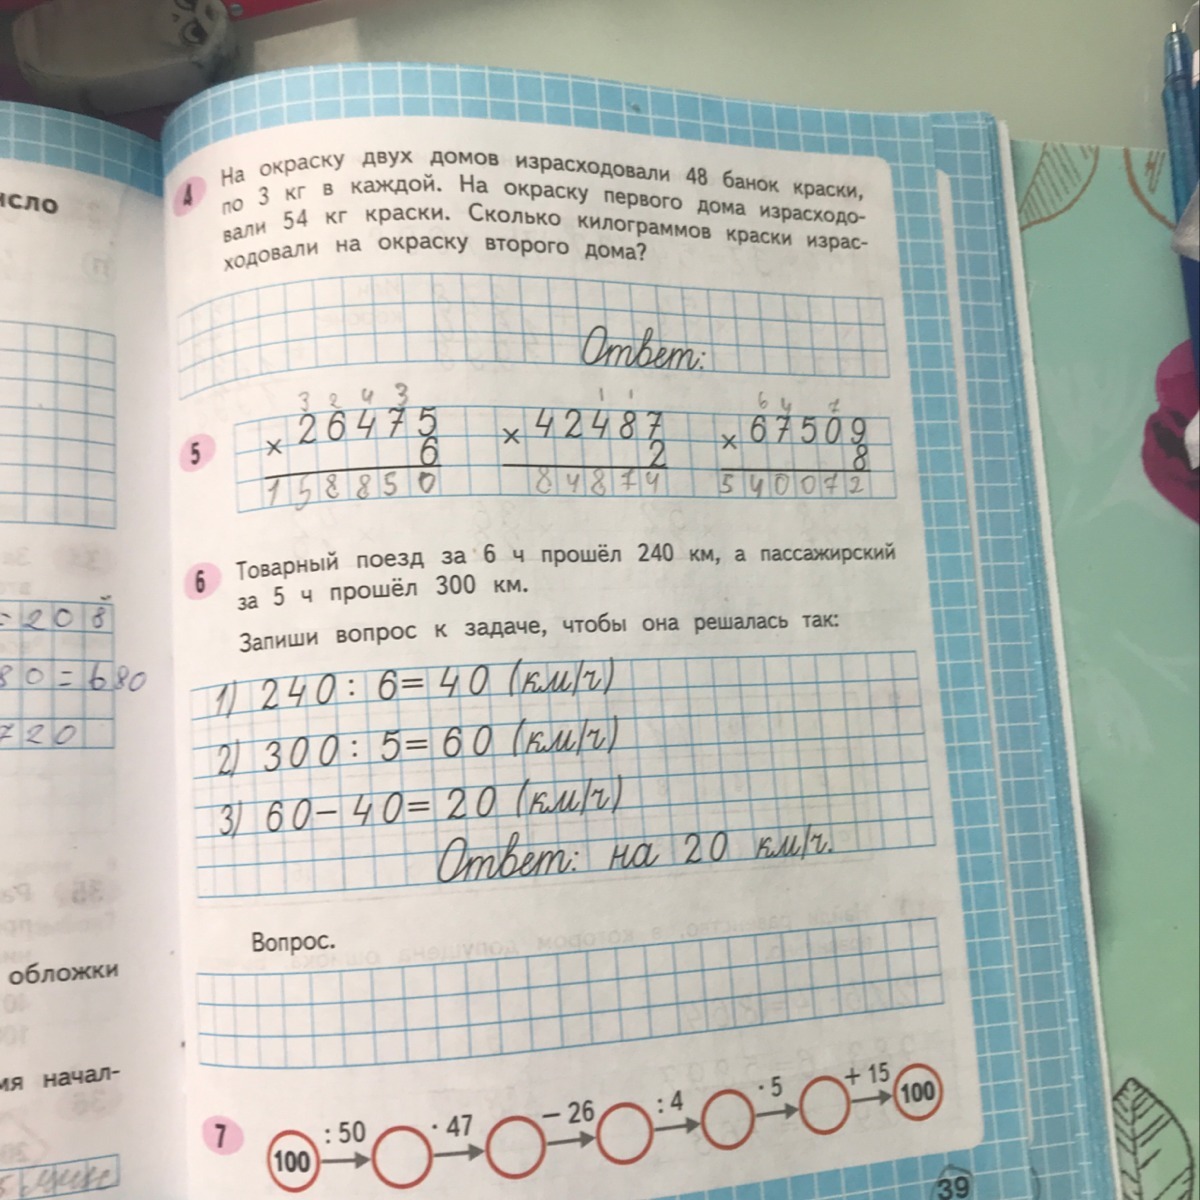 исло
4 На окраску двух домов израсходовали 48 банок краски,
по 3 кг в каждой. На окраску первого дома израсходо-
вали 54 кг краски. Сколько килограммов краски израс-
ходовали на окраску второго дома?
Ответ:
3 2 4 3 1 1 6 4 7
5 × 26475 × 42487 × 67509
6 2 8
158850 84874 540072
6 Товарный поезд за 6 ч прошёл 240 км, а пассажирский
за 5 ч прошёл 300 км.
Запиши вопрос к задаче, чтобы она решалась так:
1) 240 : 6 = 40 (км/ч)
2) 300 : 5 = 60 (км/ч)
3) 60 – 40 = 20 (км/ч)
Ответ: на 20 км/ч.
Вопрос.
7 100 : 50 · 47 – 26 : 4 · 5 + 15 100
39
= 208
80 = 680
720
обложки
мя начал-